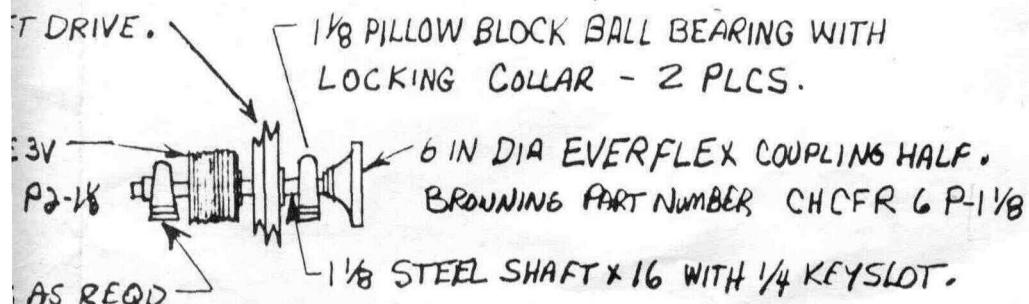 T DRIVE.
1 1/8 PILLOW BLOCK BALL BEARING WITH
LOCKING COLLAR - 2 PLCS.
3V
P2-1/8
6 IN DIA EVERFLEX COUPLING HALF.
BROWNING PART NUMBER CHCFR 6 P-1 1/8
1 1/8 STEEL SHAFT x 16 WITH 1/4 KEYSLOT.
AS REQD